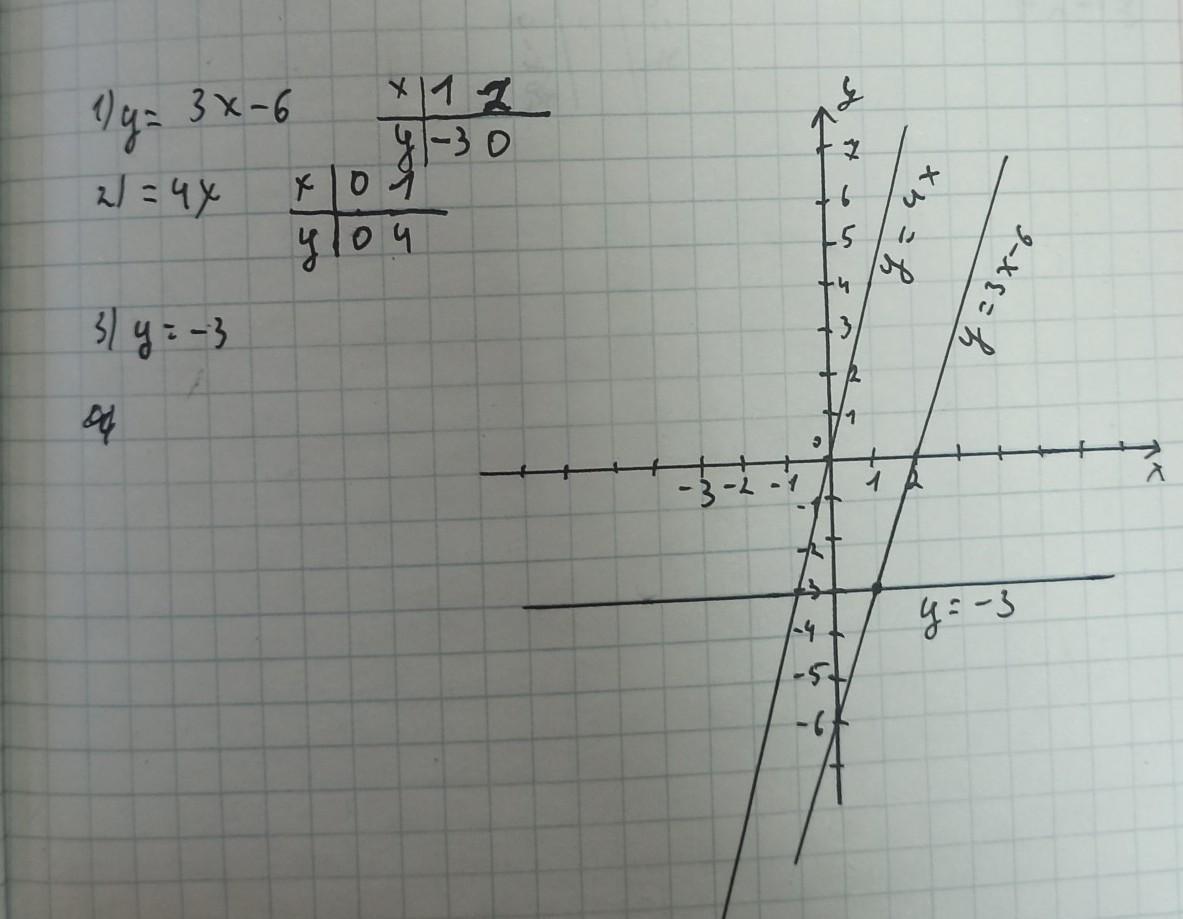 1) y = 3x - 6
x | 1 2
y | -3 0
2) = 4x
x | 0 1
y | 0 4
3) y = -3
y
7
6
5
4
3
2
1
0
-3 -2 -1 1 2
x
-1
-2
-3
-4
-5
-6
y = 4x
y = 3x-6
y = -3